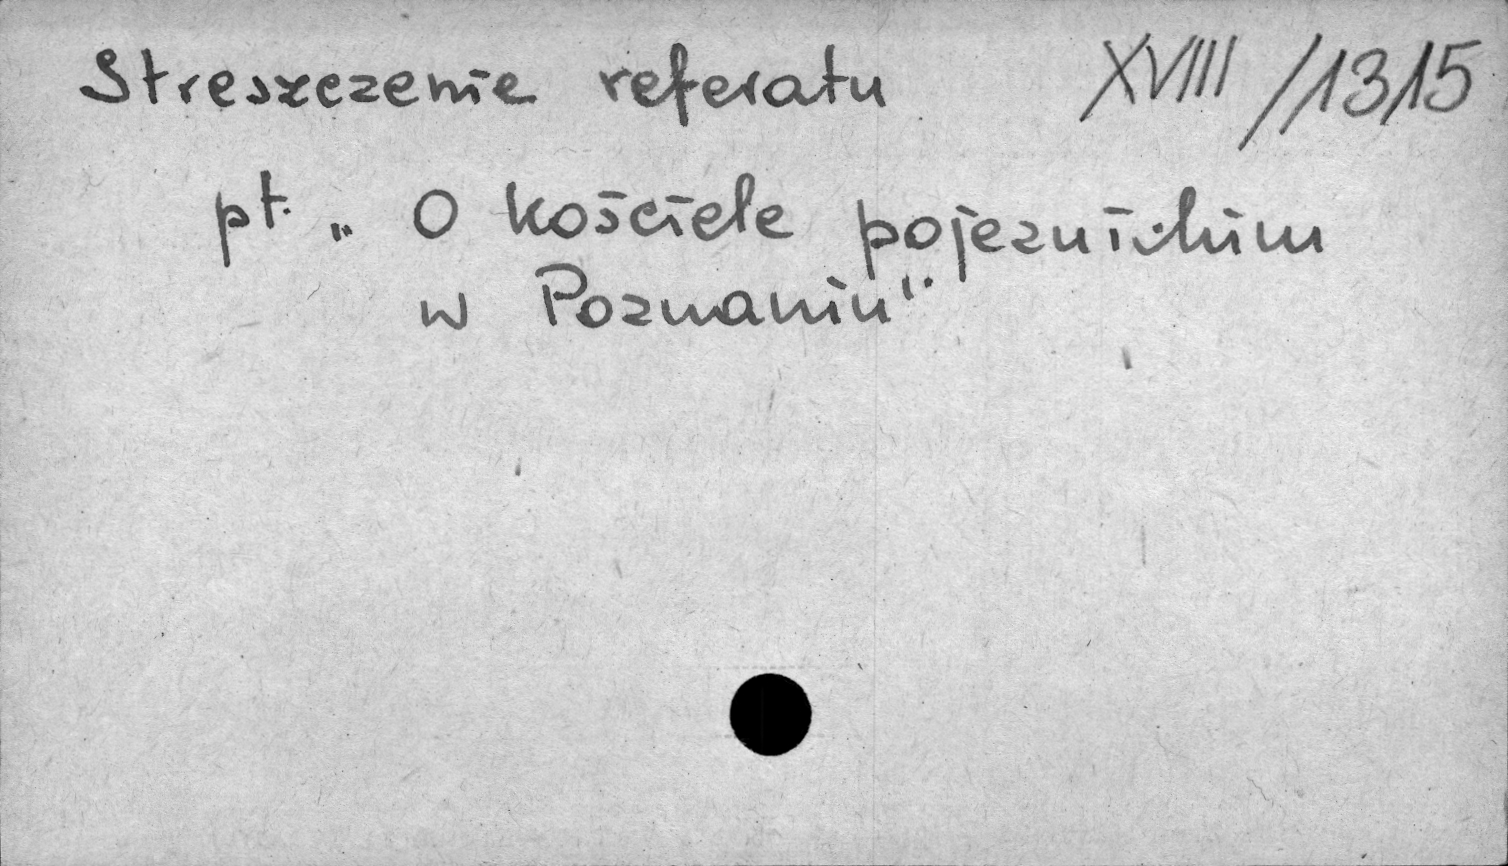 Streszczenie referatu XVIII/1315
pt. „O kościele pojezuickim
w Poznaniu".